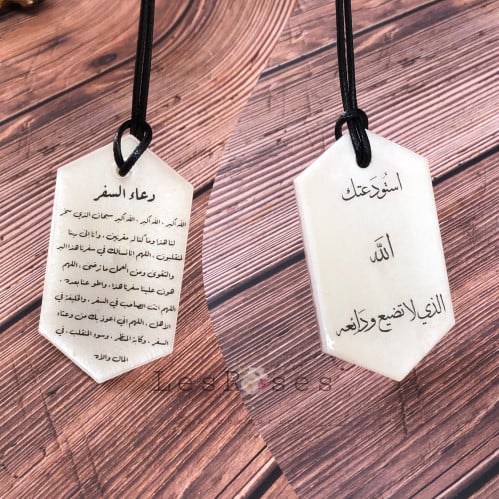 دعاء السفر
الله أكبر ، الله أكبر ، الله أكبر سبحان الذي سخر
لنا هذا وما كنا له مقرنين ، وانا الى ربنا
لمنقلبون ، اللهم انا نسالك في سفرنا هذا البر
والتقوى ومن العمل ما ترضى ، اللهم
هون علينا سفرنا هذا ، واطو عنا بعده
اللهم انت الصاحب في السفر ، والخليفة في
الأهل ، اللهم إني أعوذ بك من وعثاء
السفر ، وكآبة المنظر ، وسوء المنقلب ، في
المال والأهل
استودعتك
الله
الذي لا تضيع ودائعه
LesRoses